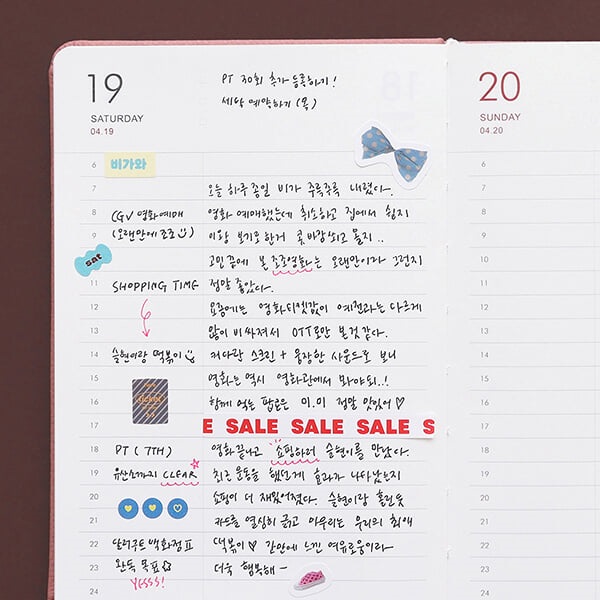 19
SATURDAY
04.19
PT 30회 추가 등록하기!
세담 예약하기 (목)
20
SUNDAY
04.20
6
비가와
7
오늘 하루종일 비가 주륵주륵 내렸다.
8
CGV 영화예매
영화 예매했는데 취소하고 집에서 쉴지
9
(오랜만에 조조)
이랑 보기로한거 콧바람쐬고 올지..
sat
고민 끝에 본 조조영화는 오랜만이라 그런지
11
SHOPPING TIME
정말 좋았다.
12
요즘에는 영화티켓값이 예전과는 다르게
13
많이 비싸져서 OTT로만 본것 같다.
14
슬현이랑 떡볶이
커다란 스크린 + 웅장한 사운드로 보니
15
영화는 역시 영화관에서 봐야돼..!
16
함께 먹는 팝콘은 미.미 정말 맛있어♡
17
E SALE SALE SALE S
18
PT (7TH)
영화끝나고 쇼핑하러 슬현이를 만났다.
19
유산소까지 CLEAR
최근 운동을 했던게 효과가 나타났는지
20
쇼핑이 더 재밌어졌다. 슬현이랑 홀린듯
21
카드를 열심히 긁고 마무리는 우리의 최애
22
달러구트 백화점
떡볶이♡ 간만에 느낀 여유로움이라
23
완독 목표
더욱 행복해~
24
YESSS!
6
7
8
9
10
11
12
13
14
15
16
17
18
19
20
21
22
23
24